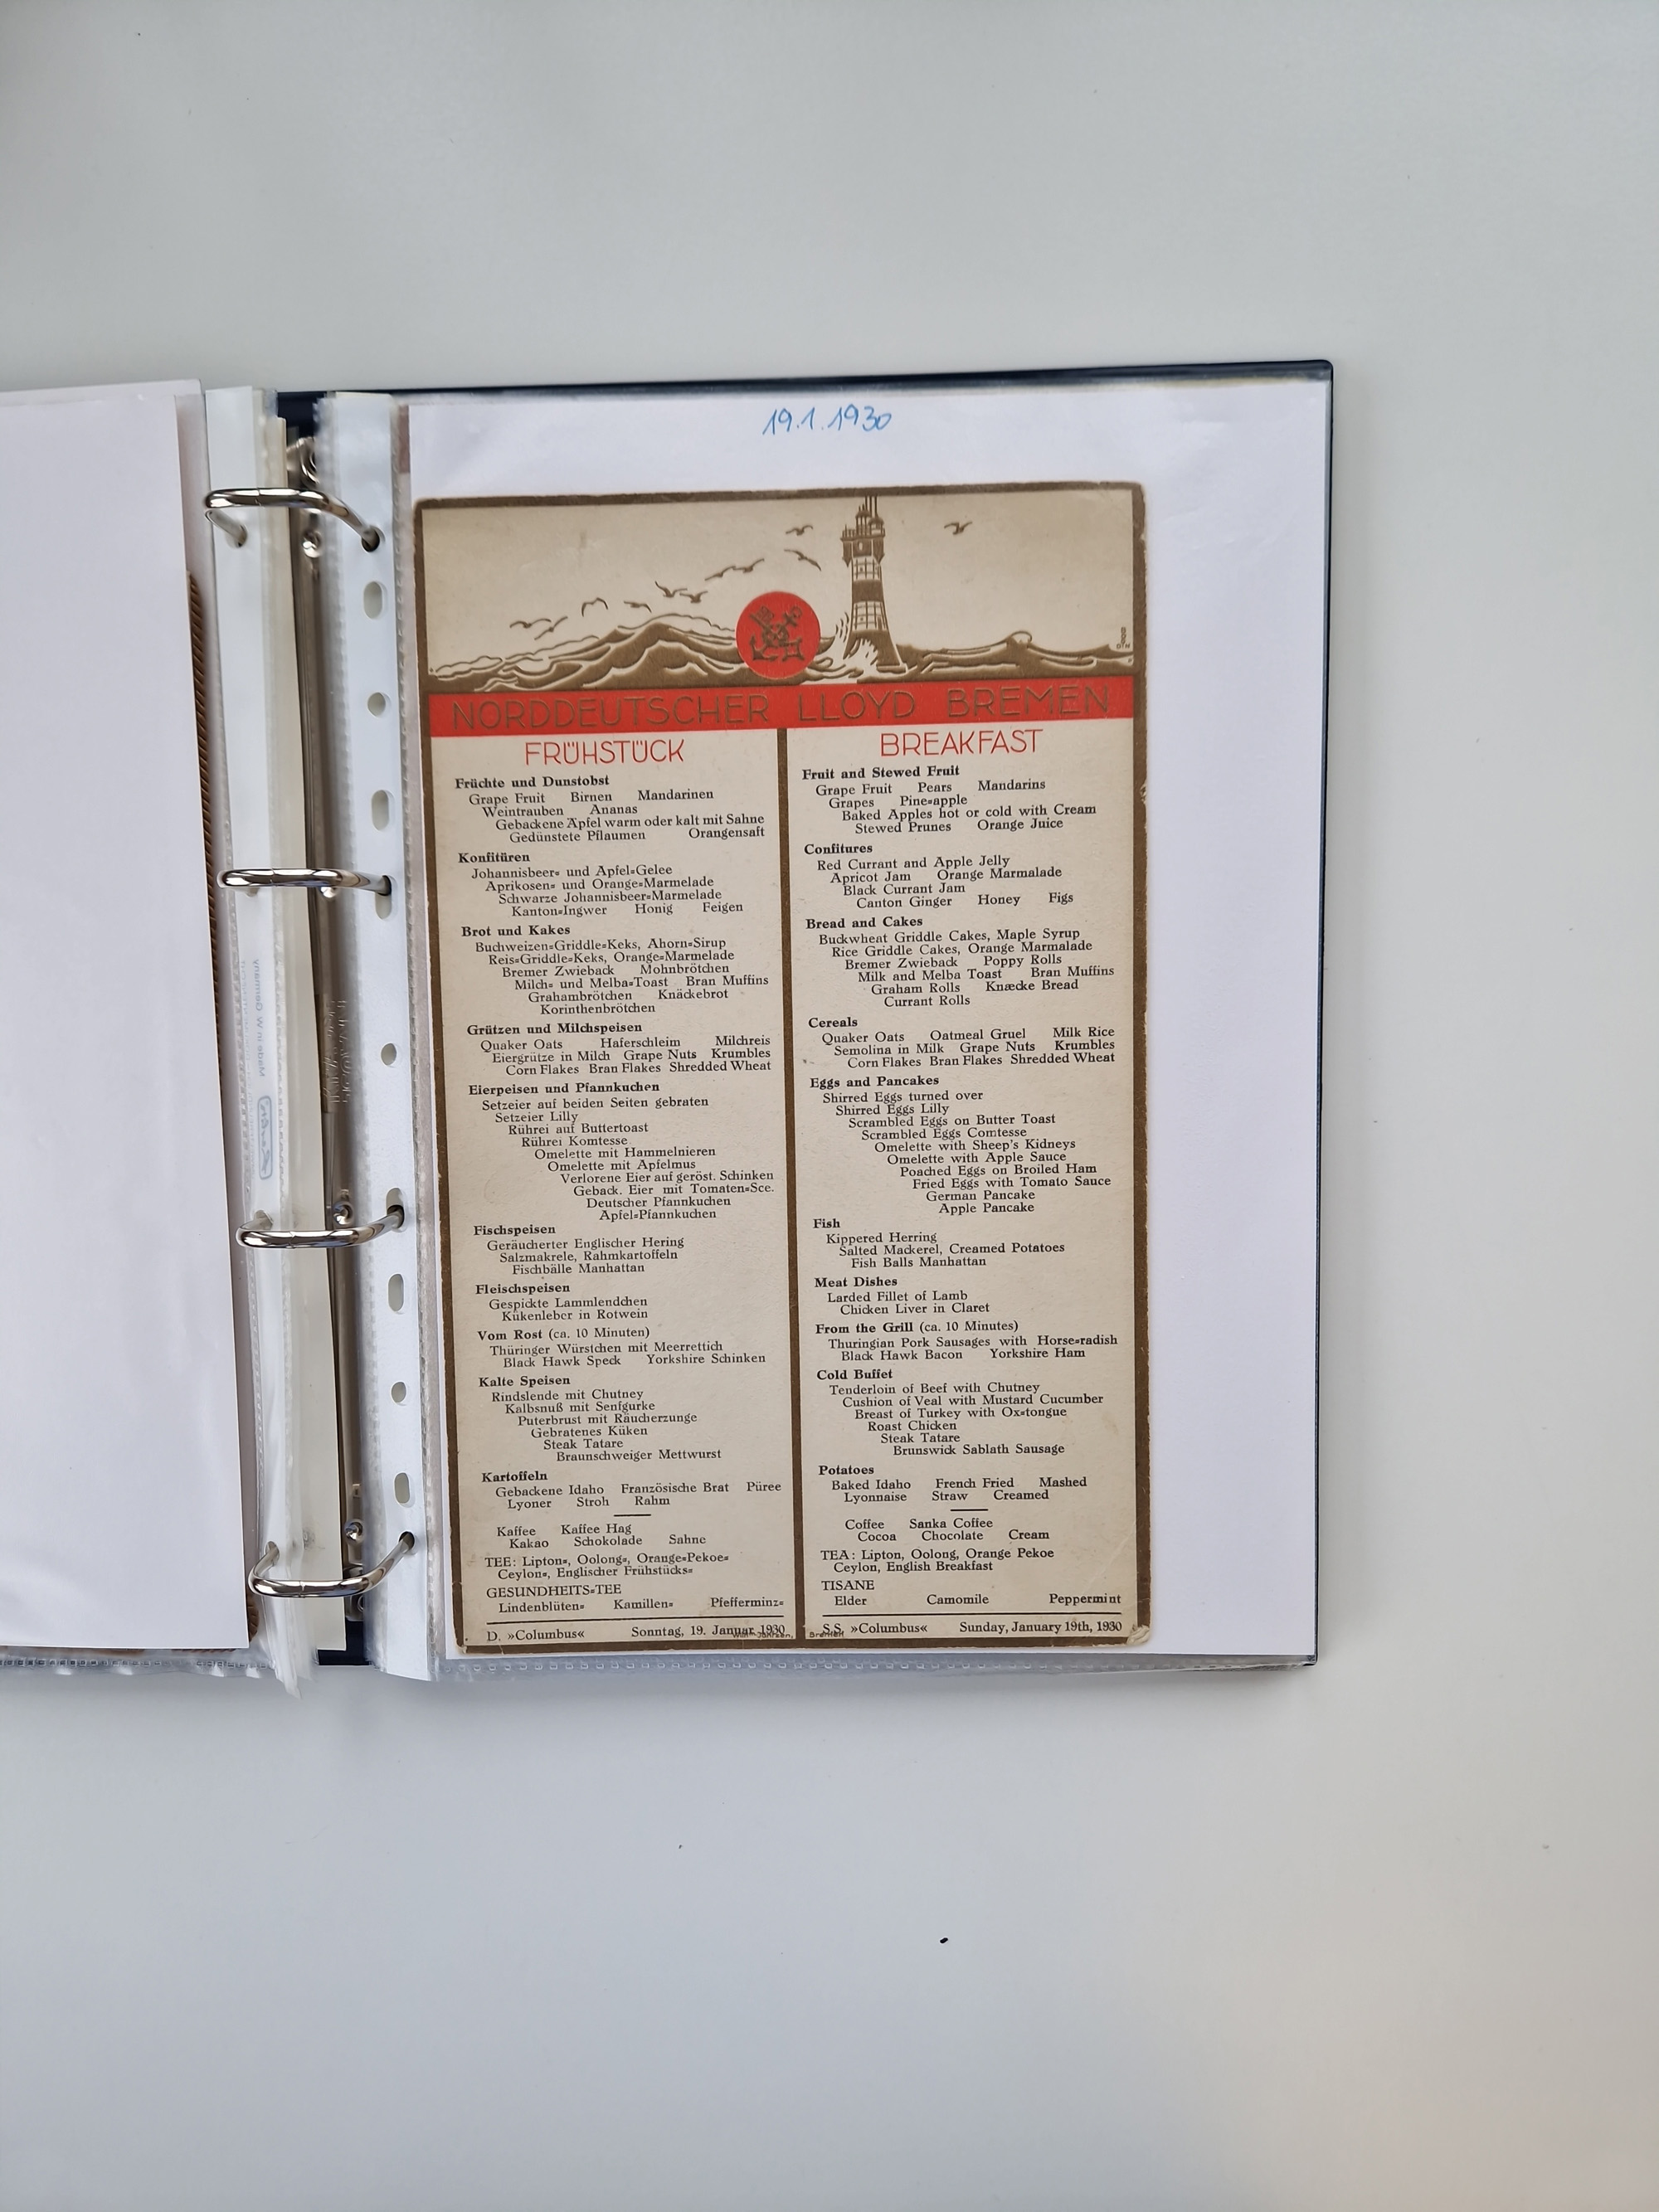 19.1.1930
NORDDEUTSCHER LLOYD BREMEN
FRÜHSTÜCK
Früchte und Dunstobst
Grape Fruit Birnen Mandarinen
Weintrauben Ananas
Gebackene Äpfel warm oder kalt mit Sahne
Gedünstete Pflaumen Orangensaft
Konfitüren
Johannisbeer= und Apfel=Gelee
Aprikosen= und Orange=Marmelade
Schwarze Johannisbeer=Marmelade
Kanton=Ingwer Honig Feigen
Brot und Kakes
Buchweizen=Griddle=Keks, Ahorn=Sirup
Reis=Griddle=Keks, Orange=Marmelade
Bremer Zwieback Mohnbrötchen
Milch= und Melba=Toast Bran Muffins
Grahambrötchen Knäckebrot
Korinthenbrötchen
Grützen und Milchspeisen
Quaker Oats Haferschleim Milchreis
Eiergrütze in Milch Grape Nuts Krumbles
Corn Flakes Bran Flakes Shredded Wheat
Eierpeisen und Pfannkuchen
Setzeier auf beiden Seiten gebraten
Setzeier Lilly
Rührei auf Buttertoast
Rührei Komtesse
Omelette mit Hammelnieren
Omelette mit Apfelmus
Verlorene Eier auf geröst. Schinken
Geback. Eier mit Tomaten=Sce.
Deutscher Pfannkuchen
Apfel=Pfannkuchen
Fischspeisen
Geräucherter Englischer Hering
Salzmakrele, Rahmkartoffeln
Fischbälle Manhattan
Fleischspeisen
Gespickte Lammlendchen
Kükenleber in Rotwein
Vom Rost (ca. 10 Minuten)
Thüringer Würstchen mit Meerrettich
Black Hawk Speck Yorkshire Schinken
Kalte Speisen
Rindslende mit Chutney
Kalbsnuß mit Senfgurke
Puterbrust mit Räucherzunge
Gebratenes Küken
Steak Tatare
Braunschweiger Mettwurst
Kartoffeln
Gebackene Idaho Französische Brat Püree
Lyoner Stroh Rahm
Kaffee Kaffee Hag
Kakao Schokolade Sahne
TEE: Lipton=, Oolong=, Orange=Pekoe=
Ceylon=, Englischer Frühstücks=
GESUNDHEITS=TEE
Lindenblüten= Kamillen= Pfefferminz=
D. »Columbus« Sonntag, 19. Januar 1930
BREAKFAST
Fruit and Stewed Fruit
Grape Fruit Pears Mandarins
Grapes Pine=apple
Baked Apples hot or cold with Cream
Stewed Prunes Orange Juice
Confitures
Red Currant and Apple Jelly
Apricot Jam Orange Marmalade
Black Currant Jam
Canton Ginger Honey Figs
Bread and Cakes
Buckwheat Griddle Cakes, Maple Syrup
Rice Griddle Cakes, Orange Marmalade
Bremer Zwieback Poppy Rolls
Milk and Melba Toast Bran Muffins
Graham Rolls Knæcke Bread
Currant Rolls
Cereals
Quaker Oats Oatmeal Gruel Milk Rice
Semolina in Milk Grape Nuts Krumbles
Corn Flakes Bran Flakes Shredded Wheat
Eggs and Pancakes
Shirred Eggs turned over
Shirred Eggs Lilly
Scrambled Eggs on Butter Toast
Scrambled Eggs Comtesse
Omelette with Sheep's Kidneys
Omelette with Apple Sauce
Poached Eggs on Broiled Ham
Fried Eggs with Tomato Sauce
German Pancake
Apple Pancake
Fish
Kippered Herring
Salted Mackerel, Creamed Potatoes
Fish Balls Manhattan
Meat Dishes
Larded Fillet of Lamb
Chicken Liver in Claret
From the Grill (ca. 10 Minutes)
Thuringian Pork Sausages with Horse=radish
Black Hawk Bacon Yorkshire Ham
Cold Buffet
Tenderloin of Beef with Chutney
Cushion of Veal with Mustard Cucumber
Breast of Turkey with Ox=tongue
Roast Chicken
Steak Tatare
Brunswick Sablath Sausage
Potatoes
Baked Idaho French Fried Mashed
Lyonnaise Straw Creamed
Coffee Sanka Coffee
Cocoa Chocolate Cream
TEA: Lipton, Oolong, Orange Pekoe
Ceylon, English Breakfast
TISANE
Elder Camomile Peppermint
S.S. »Columbus« Sunday, January 19th, 1930
Made in W. Germany